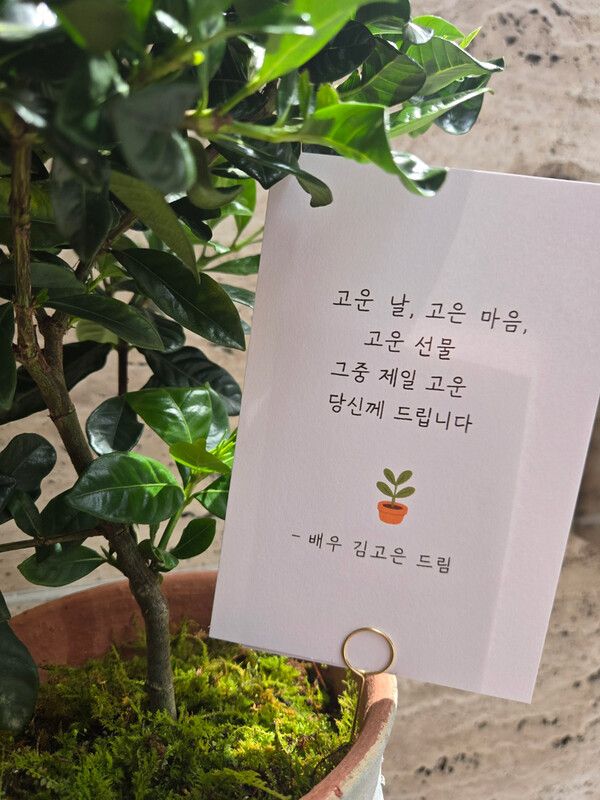 고운 날, 고은 마음,
고운 선물
그중 제일 고운
당신께 드립니다
- 배우 김고은 드림